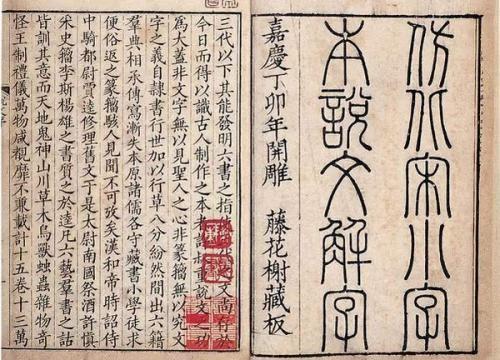 仿北宋小字
本說文解字
嘉慶丁卯年開雕 藤花榭藏板
三代以下其能發明六書之指之文尚存於
今日而得以識古人制作之本者許叔重說文之功
爲大蓋非文字無以見聖人之心非篆籀無以究文
字之義自隸書行世加以行草八分紛然間出六籍
羣典相承傳寫漸失本原諸儒各守藏書小學徒求
便俗返之篆籀駭人見聞不可攷矣漢和帝時詔侍
中騎都尉賈逵修理舊文于是太尉南國祭酒許慎
采史籀李斯楊雄之書質之於逵凡六藝羣書之詁
皆訓其意而天地鬼神山川草木鳥獸蟲雜物奇
怪王制禮儀萬物咸覩靡不兼載計十五卷十三萬